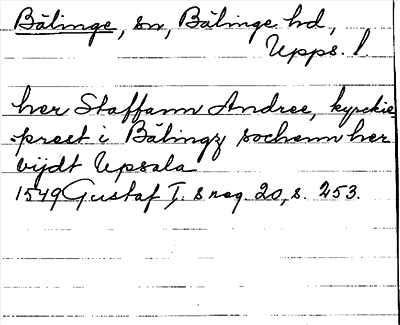 Bälinge, sn, Bälinge hd,
Upps. l.
her Staffann Andree, kyrckie
prest i Bälingz sochenn her
vijdt Upsala
1549 Gustaf I:s reg. 20, s. 253.